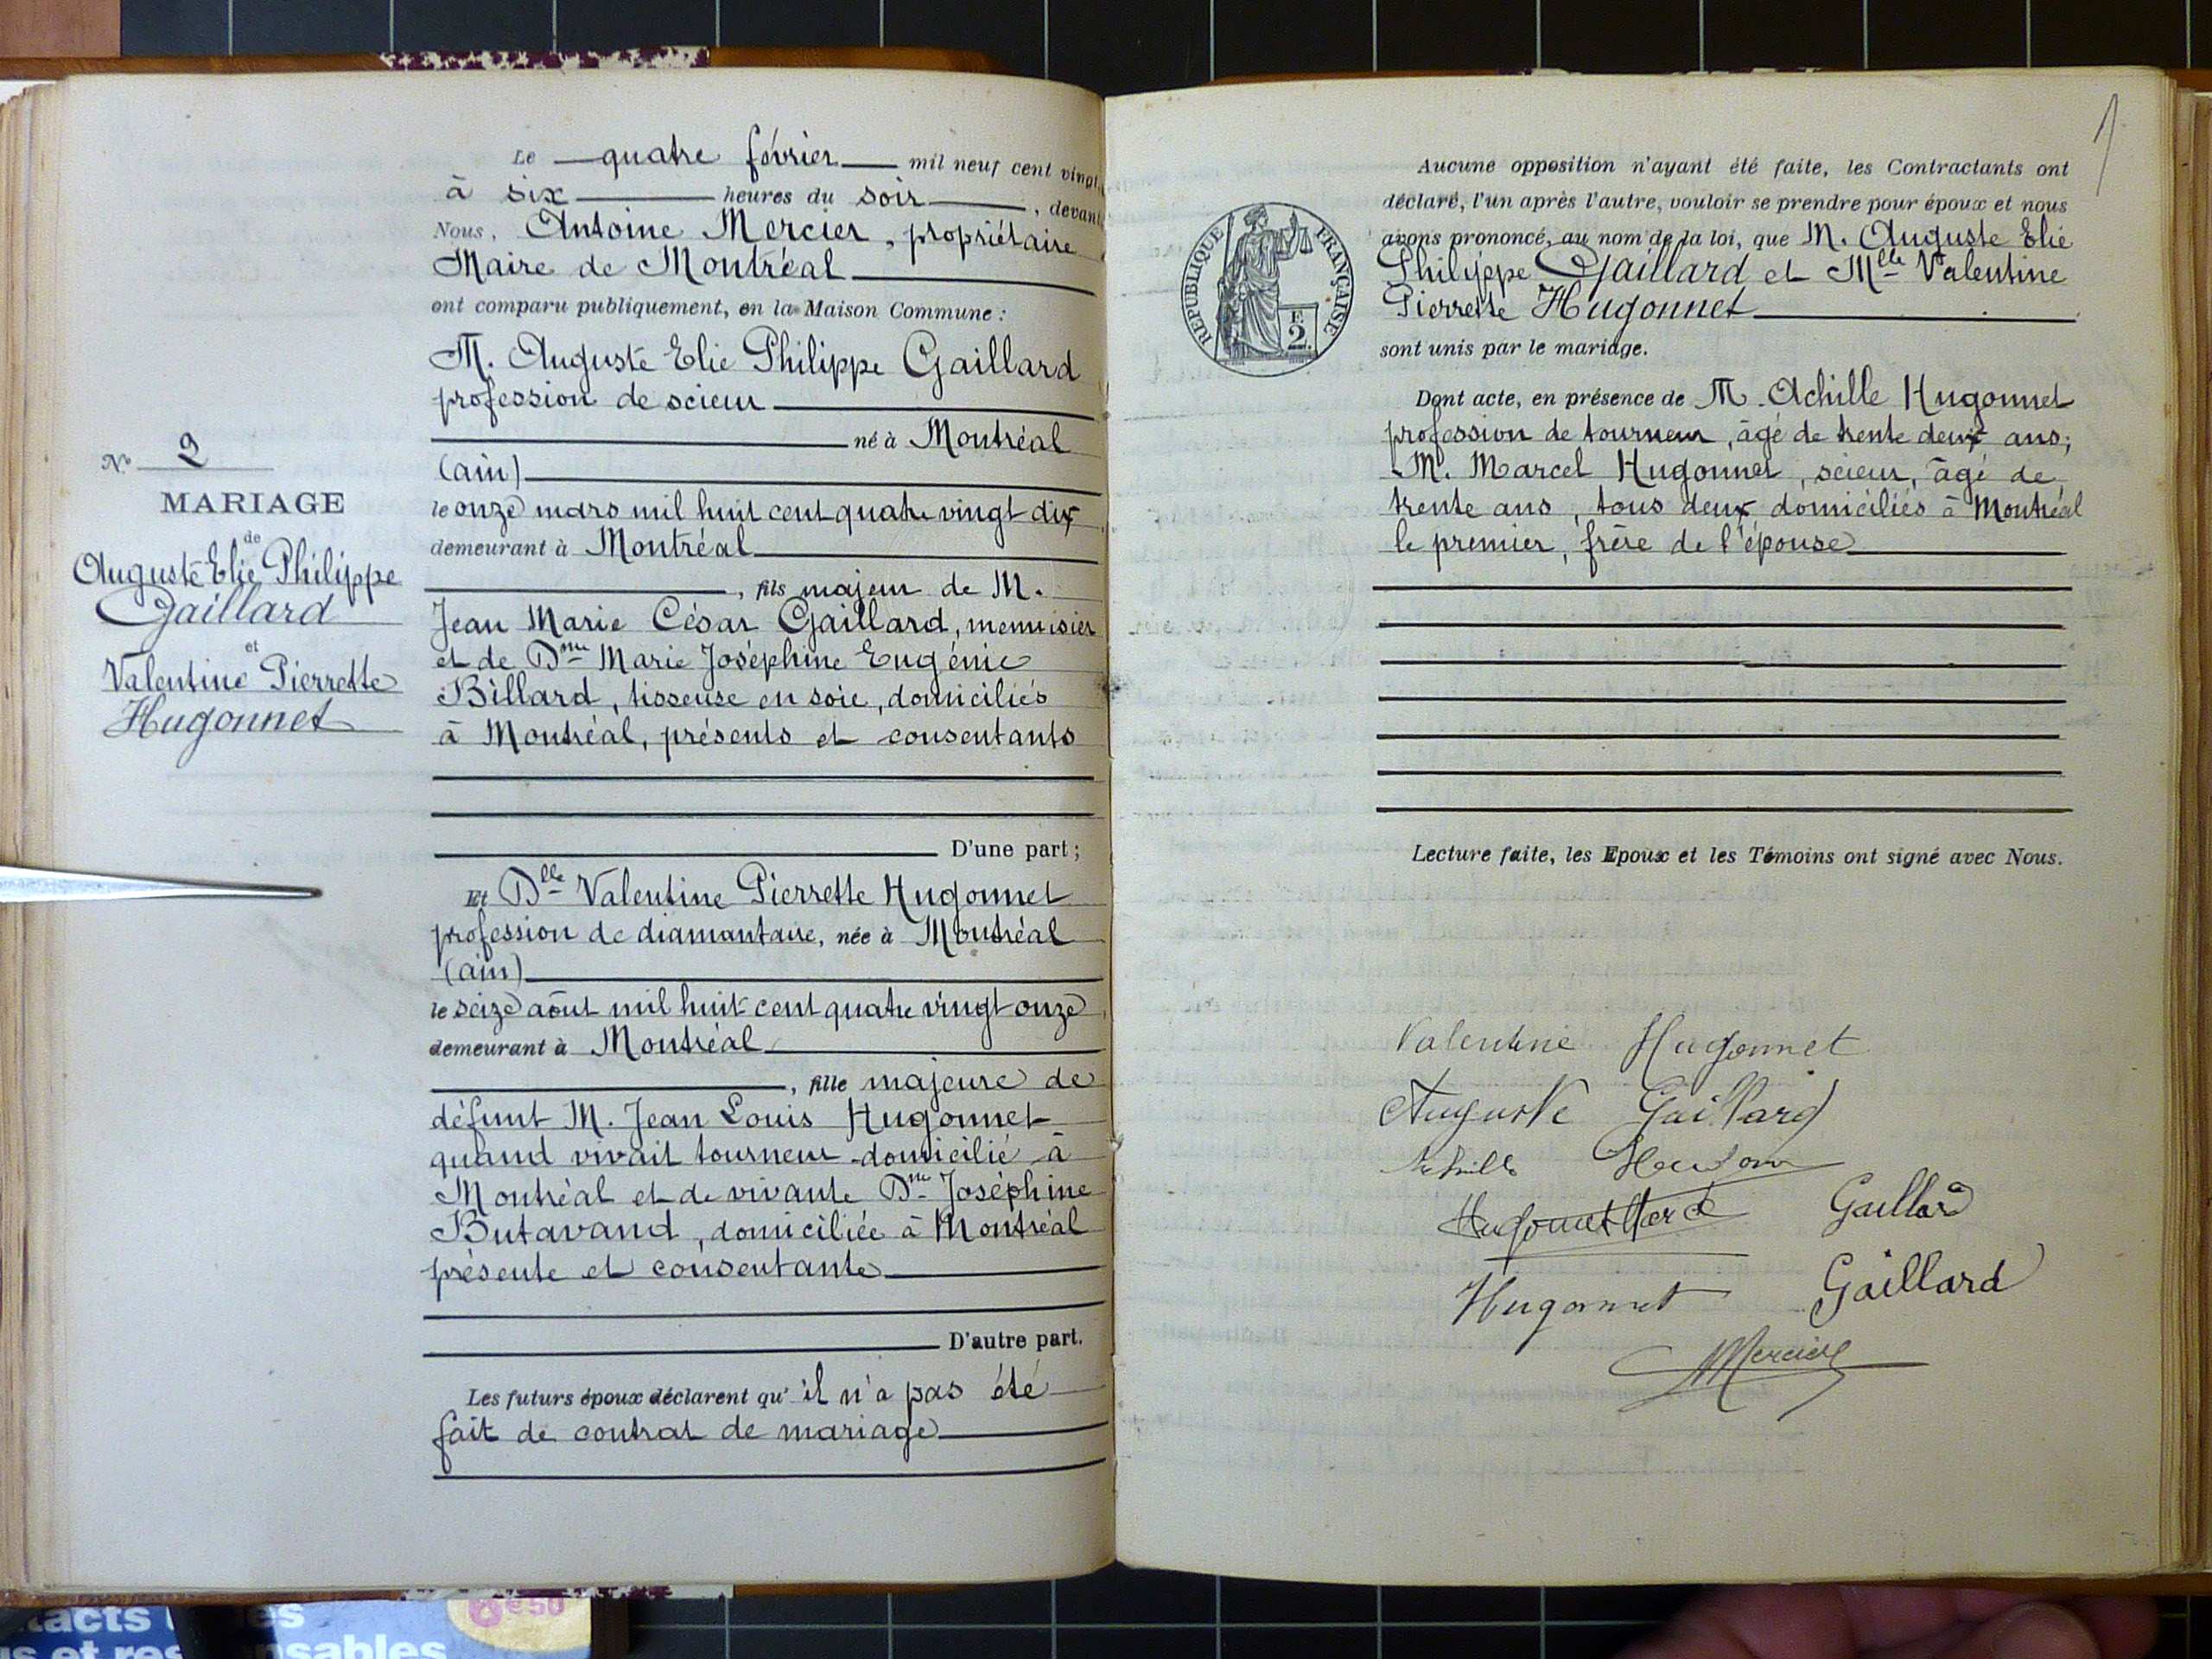 Le quatre février mil neuf cent vingt
à six heures du soir, devant
Nous, Antoine Mercier, propriétaire
Maire de Montréal
ont comparu publiquement, en la Maison Commune :
M. Auguste Elie Philippe Gaillard
profession de scieur
né à Montréal
(ain)
le onze mars mil huit cent quatre vingt dix
demeurant à Montréal
, fils majeur de M.
Jean Marie César Gaillard, menuisier
et de Dme Marie Joséphine Eugénie
Billard, tisseuse en soie, domiciliés
à Montréal, présents et consentants
D'une part ;
Et Dlle Valentine Pierrette Hugonnet
profession de diamantaire, née à Montréal
(ain)
le seize août mil huit cent quatre vingt onze
demeurant à Montréal
, fille majeure de
défunt M. Jean Louis Hugonnet
quand vivait tourneur domicilié à
Montréal et de vivante Dme Joséphine
Butavand, domiciliée à Montréal
présente et consentante
D'autre part.
Les futurs époux déclarent qu'il n'a pas été
fait de contrat de mariage
No 2
MARIAGE
de
Auguste Elie Philippe
Gaillard
et
Valentine Pierrette
Hugonnet
Aucune opposition n'ayant été faite, les Contractants ont
déclaré, l'un après l'autre, vouloir se prendre pour époux et nous
avons prononcé, au nom de la loi, que M. Auguste Elie
Philippe Gaillard et Mlle Valentine
Pierrette Hugonnet
sont unis par le mariage.
Dont acte, en présence de M. Achille Hugonnet
profession de tourneur, âgé de trente deux ans;
M. Marcel Hugonnet, scieur, âgé de
trente ans, tous deux domiciliés à Montréal
le premier, frère de l'épouse
Lecture faite, les Epoux et les Témoins ont signé avec Nous.
REPUBLIQUE FRANÇAISE
F.
2.
Valentine Hugonnet
Auguste Gaillard
Achille
Hugonnet Gaillard
Hugonnet Gaillard
Mercier
6€50